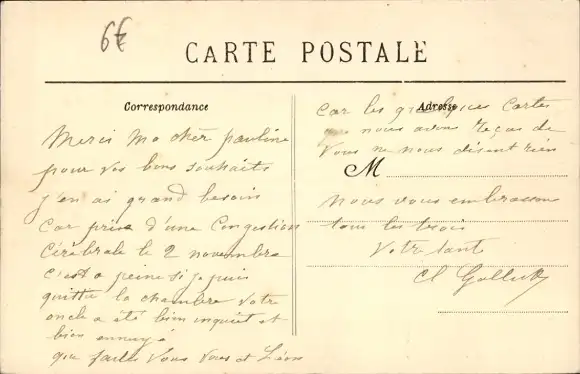 6€
CARTE POSTALE
Correspondance
Merci ma chèr pauline
pour vos bons souhaits
j'en ai grand besoin
Car prise d'une Congestion
Cérébrale le 2 novembre
C'est a peine si je puis
quitter la chambre Votre
oncle a été bien inquiet et
bien ennuyé
que faites Vous Vous et Léon
Adresse
Car les quelques Cartes
que nous avons reçus de
Vous ne nous disent rien
M
nous vous embrassons
tous les trois
Votre tante